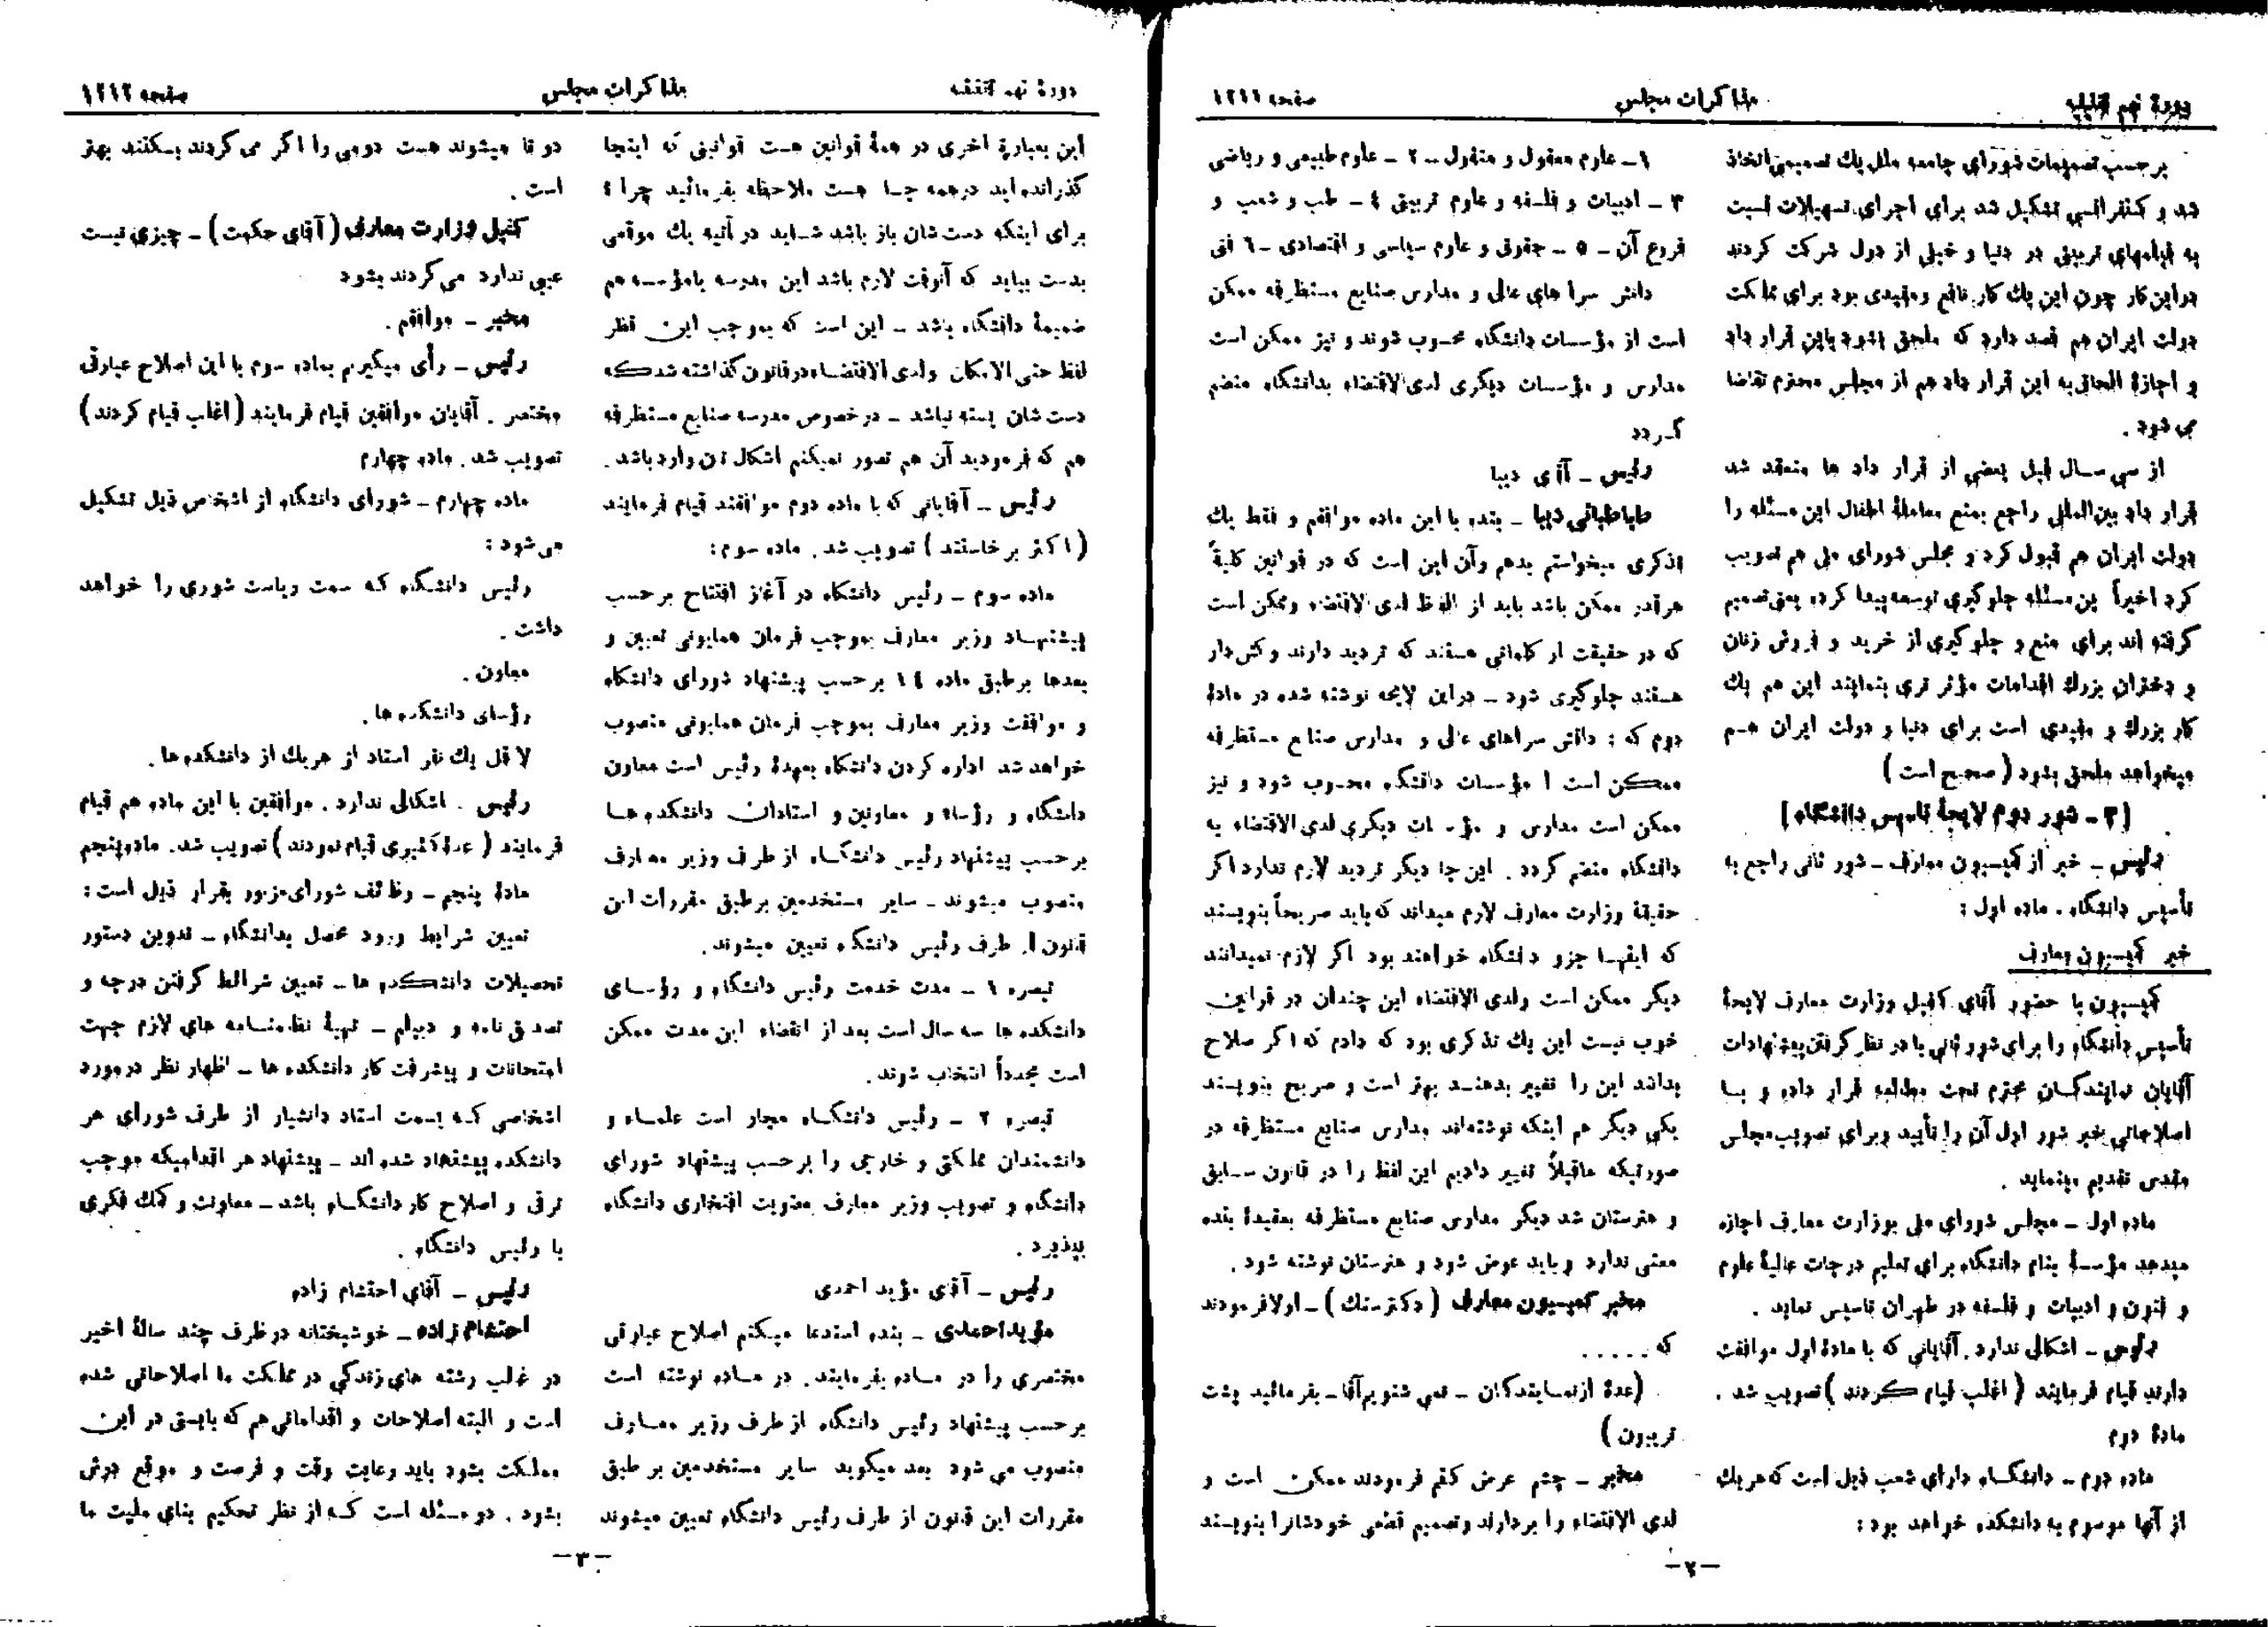 دورهٔ نهم تقنینیه
مذاکرات مجلس
صفحه ۱۲۱۱
بر حسب تصمیمات شورای جامعه ملل یك تصمیمی اتخاذ
شد و کنفرانسی تشکیل شد برای اجرای تسهیلات نسبت
به فیلمهای تربیتی در دنیا و خیلی از دول شرکت کردند
در این کار چون این یك کار نافع و مفیدی بود برای مملکت
دولت ایران هم قصد دارد که ملحق بشود باین قرار داد
و اجازهٔ الحاق به این قرار داد هم از مجلس محترم تقاضا
می شود .
از سی سال قبل بعضی از قرار داد ها منعقد شد
قرار داد بین‌المللی راجع بمنع معاملهٔ اطفال این مسئله را
دولت ایران هم قبول کرد و مجلس شورای ملی هم تصویب
کرد اخیراً این مسئله جلوگیری توسعه پیدا کرده یعنی تصمیم
گرفته اند برای منع و جلوگیری از خرید و فروش زنان
و دختران بزرك اقدامات مؤثر تری بنمایند این هم یك
کار بزرك و مفیدی است برای دنیا و دولت ایران هم
میخواهد ملحق بشود ( صحیح است )
[ ۳ ـ شور دوم لایحهٔ تاسیس دانشگاه ]
رئیس ـ خبر از کمیسیون معارف ـ شور ثانی راجع به
تأسیس دانشگاه . ماده اول :
خبر کمیسیون معارف
کمیسیون با حضور آقای کفیل وزارت معارف لایحهٔ
تأسیس دانشگاه را برای شور ثانی با در نظر گرفتن پیشنهادات
آقایان نمایندگان محترم تحت مطالعه قرار داده و با
اصلاحاتی خبر شور اول آن را تأیید و برای تصویب مجلس
مقدس تقدیم مینماید .
ماده اول ـ مجلس شورای ملی بوزارت معارف اجازه
میدهد مؤسسهٔ بنام دانشگاه برای تعلیم درجات عالیهٔ علوم
و فنون و ادبیات و فلسفه در طهران تاسیس نماید .
رئیس ـ اشکالی ندارد . آقایانی که با مادهٔ اول موافقت
دارند قیام فرمایند ( اغلب قیام کردند ) تصویب شد .
مادهٔ دوم
ماده دوم ـ دانشگاه دارای شعب ذیل است که هر یك
از آنها موسوم به دانشکده خواهد بود :
۱ ـ علوم معقول و منقول ـ ۲ ـ علوم طبیعی و ریاضی
۳ ـ ادبیات و فلسفه و علوم تربیتی ٤ ـ طب و شعب و
فروع آن ـ ٥ ـ حقوق و علوم سیاسی و اقتصادی ـ ٦ فنی
دانش سرا های عالی و مدارس صنایع مستظرفه ممکن
است از مؤسسات دانشگاه محسوب شوند و نیز ممکن است
مدارس و مؤسسات دیگری لدی‌الاقتضاء بدانشگاه منضم
گردد
رئیس ـ آقای دیبا
طباطبائی دیبا ـ بنده با این ماده موافقم و فقط یك
تذکری میخواستم بدهم و آن این است که در قوانین کلیةً
هر قدر ممکن باشد باید از الفاظ لدی الاقتضاء و ممکن است
که در حقیقت از کلماتی هستند که تردید دارند و کش دار
هستند جلوگیری شود ـ در این لایحه نوشته شده در مادهٔ
دوم که : دانش سراهای عالی و مدارس صنایع مستظرفه
ممکن است از مؤسسات دانشگاه محسوب شود و نیز
ممکن است مدارس و مؤسسات دیگری لدی الاقتضاء به
دانشگاه منضم گردد . این جا دیگر تردید لازم ندارد اگر
حقیقة وزارت معارف لازم میداند که باید صریحاً بنویسند
که اینها جزو دانشگاه خواهند بود اگر لازم نمیدانند
دیگر ممکن است ولدی الاقتضاء این چندان در قوانین
خوب نیست این یك تذکری بود که دادم که اگر صلاح
بدانند این را تغییر بدهند بهتر است و صریح بنویسند
یکی دیگر هم اینکه نوشته‌اند مدارس صنایع مستظرفه در
صورتیکه ماقبلاً تغییر دادیم این لفظ را در قانون سابق
و هنرستان شد دیگر مدارس صنایع مستظرفه بعقیدهٔ بنده
معنی ندارد و باید عوض شود و هنرستان نوشته شود .
مخبر کمیسیون معارف ( دکتر سنك ) ـ اولا فرمودند
که . . . . .
( عدهٔ از نمایندگان ـ نمی شنویم آقا ـ بفرمائید پشت
تریبون )
مخبر ـ چشم عرض کنم فرمودند ممکن است و
لدی الاقتضاء را بردارند و تصمیم قطعی خودشانرا بنویسند
ـ ۲ ـ
دورهٔ نهم تقنینیه
مذاکرات مجلس
صفحه ۱۲۱۲
این بعبارة اخری در همهٔ قوانین هست قوانینی که اینجا
گذرانده اید در همه جا هست ملاحظه بفرمائید چرا ؟
برای اینکه دست شان باز باشد شاید در آتیه یك موقعی
بدست بیاید که آنوقت لازم باشد این مدرسه یا مؤسسه هم
ضمیمهٔ دانشگاه باشد ـ این است که بموجب این نظر
لفظ حتی الامکان ولدی الاقتضاء در قانون گذاشته شد که
دست شان بسته نباشد ـ در خصوص مدرسه صنایع مستظرفه
هم که فرمودید آن هم تصور نمیکنم اشکال تن وارد باشد .
رئیس ـ آقایانی که با ماده دوم موافقند قیام فرمایند
( اکثر برخاستند ) تصویب شد . ماده سوم :
ماده سوم ـ رئیس دانشگاه در آغاز افتتاح بر حسب
پیشنهاد وزیر معارف بموجب فرمان همایونی تعیین و
بعدها بر طبق ماده ۱٤ بر حسب پیشنهاد شورای دانشگاه
و موافقت وزیر معارف بموجب فرمان همایونی منصوب
خواهد شد اداره کردن دانشگاه بعهدهٔ رئیس است معاون
دانشگاه و رؤساء و معاونین و استادان دانشکده ها
بر حسب پیشنهاد رئیس دانشگاه از طرف وزیر معارف
منصوب میشوند ـ سایر مستخدمین بر طبق مقررات این
قانون از طرف رئیس دانشگاه تعیین میشوند .
تبصره ۱ ـ مدت خدمت رئیس دانشگاه و رؤسای
دانشکده ها سه سال است بعد از انقضاء این مدت ممکن
است مجدداً انتخاب شوند .
تبصره ۲ ـ رئیس دانشگاه مجاز است علماء و
دانشمندان مملکتی و خارجی را بر حسب پیشنهاد شورای
دانشگاه و تصویب وزیر معارف بعضویت افتخاری دانشگاه
بپذیرد .
رئیس ـ آقای مؤید احمدی
مؤید احمدی ـ بنده استدعا میکنم اصلاح عبارتی
مختصری را در ماده بفرمایند . در ماده نوشته است
بر حسب پیشنهاد رئیس دانشگاه از طرف وزیر معارف
منصوب می شود بعد میگوید سایر مستخدمین بر طبق
مقررات این قانون از طرف رئیس دانشگاه تعیین میشوند
دو تا میشوند هست دومی را اگر می کردند بـکنند بهتر
است .
کفیل وزارت معارف ( آقای حکمت ) ـ چیزی نیست
عیبی ندارد می کردند بشود
مخبر ـ موافقم .
رئیس ـ رأی میگیرم بماده سوم با این اصلاح عبارتی
مختصر . آقایان موافقین قیام فرمایند ( اغلب قیام کردند )
تصویب شد . ماده چهارم
ماده چهارم ـ شورای دانشگاه از اشخاص ذیل تشکیل
می شود :
رئیس دانشگاه که سمت ریاست شوری را خواهد
داشت .
معاون .
رؤسای دانشکده ها .
لا قل یك نفر استاد از هر یك از دانشکده ها .
رئیس . اشکالی ندارد . موافقین با این ماده هم قیام
فرمایند ( عدهٔ کثیری قیام نمودند ) تصویب شد . ماده پنجم
مادهٔ پنجم ـ وظائف شورای مزبور بقرار ذیل است :
تعیین شرایط ورود محصل بدانشگاه ـ تدوین دستور
تحصیلات دانشکده ها ـ تعیین شرائط گرفتن درجه و
تصدیق نامه و دیپلم ـ تهیهٔ نظامنامه های لازم جهت
امتحانات و پیشرفت کار دانشکده ها ـ اظهار نظر در مورد
اشخاصی که بسمت استاد دانشیار از طرف شورای هر
دانشکده پیشنهاد شده اند ـ پیشنهاد هر اقدامیکه موجب
ترقی و اصلاح کار دانشگاه باشد ـ معاونت و کمك فکری
با رئیس دانشگاه .
رئیس ـ آقای احتشام زاده
احتشام زاده ـ خوشبختانه در ظرف چند سالهٔ اخیر
در غالب رشته های زندگی در مملکت ما اصلاحاتی شده
است و البته اصلاحات و اقداماتی هم که بایستی در این
مملکت بشود باید رعایت وقت و فرصت و موقع درش
بشود . دو مسئله است که از نظر تحکیم بنای ملیت ما
ـ ۳ ـ